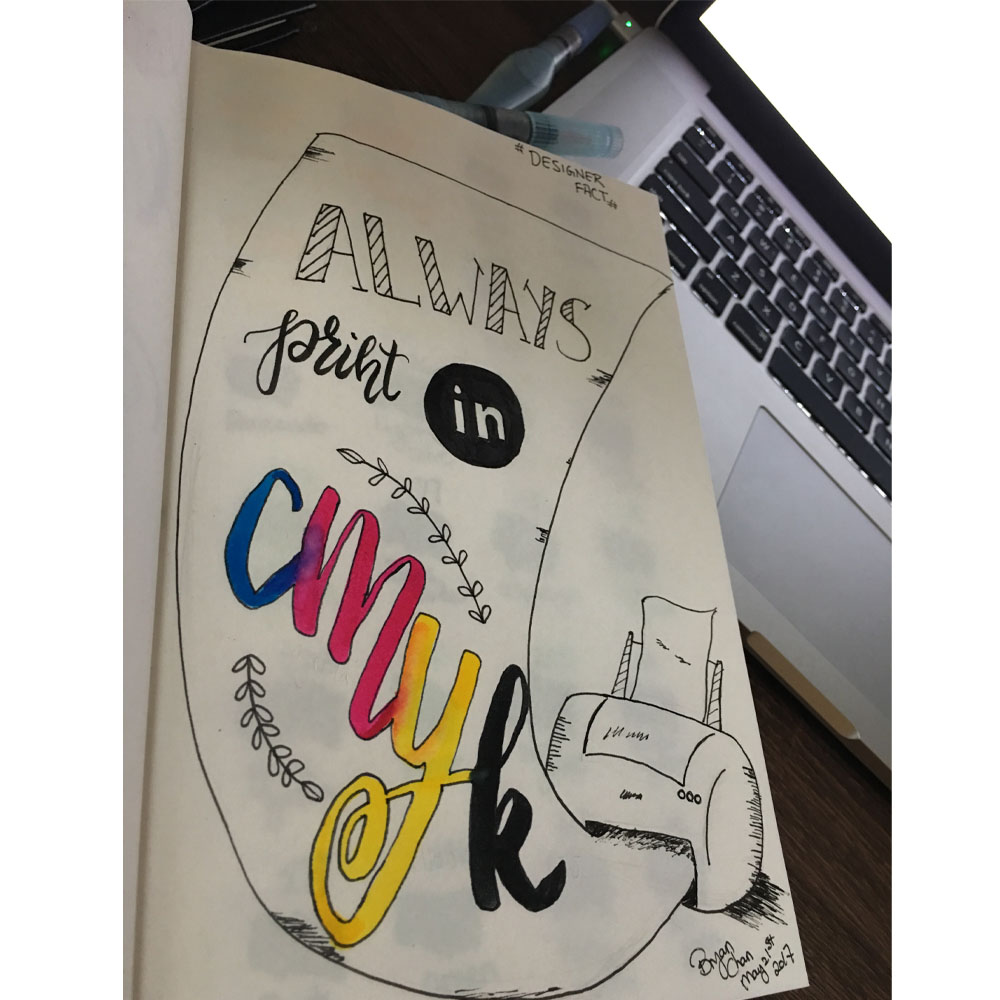 # DESIGNER
FACT#
ALWAYS
print in
cmyk
Bryan
Chan
May 21st
2017